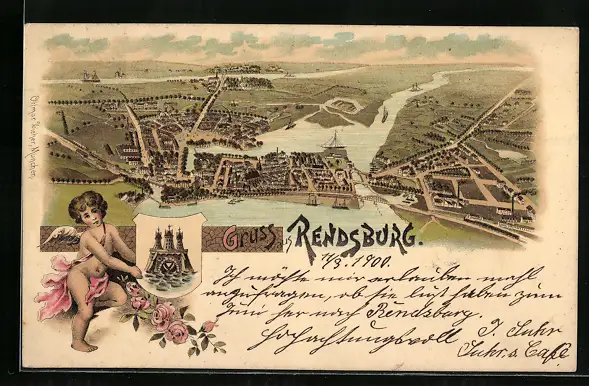 Ottmar Zieher, München
Gruss aus RENDSBURG.
7/3. 1900.
Ich möchte mir erlauben mahl
anzufragen, ob sie lust haben zum
her nach Rendsburg.
Hochachtungsvoll J. Suhr
Suhr.s Café